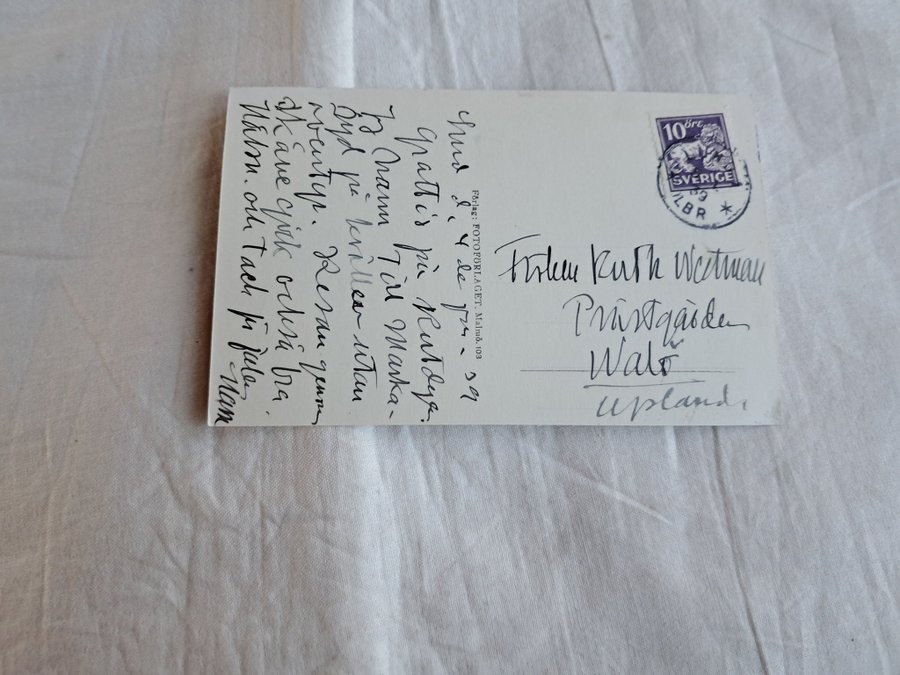 Lund d. 4 de jan. 39
Grattis på Rutdagen.
Jag hann till Marka-
ryd på kvällen utan
äventyr. Resan genom
Skåne gick också bra.
Hälsn. och tack för julen
Förlag: FOTOFÖRLAGET, Malmö. 103
10 ÖRE
SVERIGE
39
LBR
Fröken Ruth Westman
Prästgården
Walö
Upland.